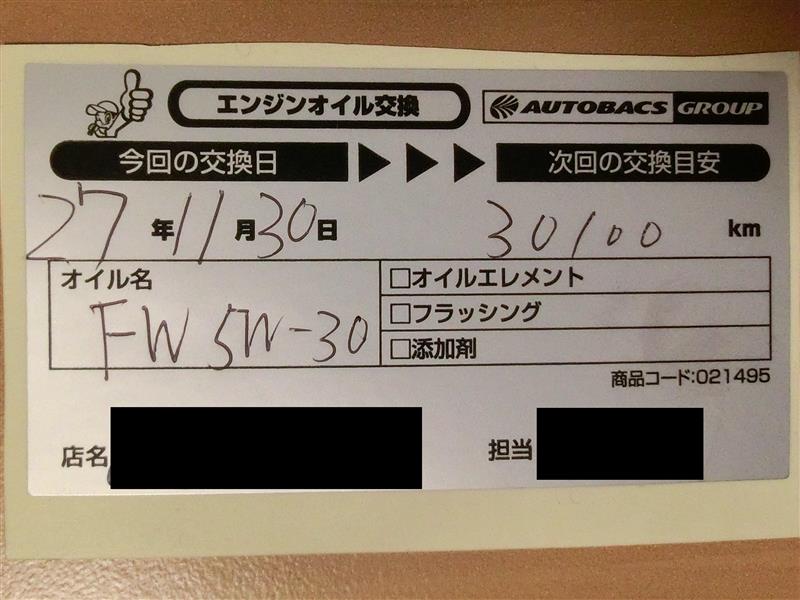 エンジンオイル交換 AUTOBACS GROUP
今回の交換日 次回の交換目安
27年11月30日 30100 km
オイル名 □オイルエレメント
FW 5W-30 □フラッシング
□添加剤
商品コード:021495
店名 担当